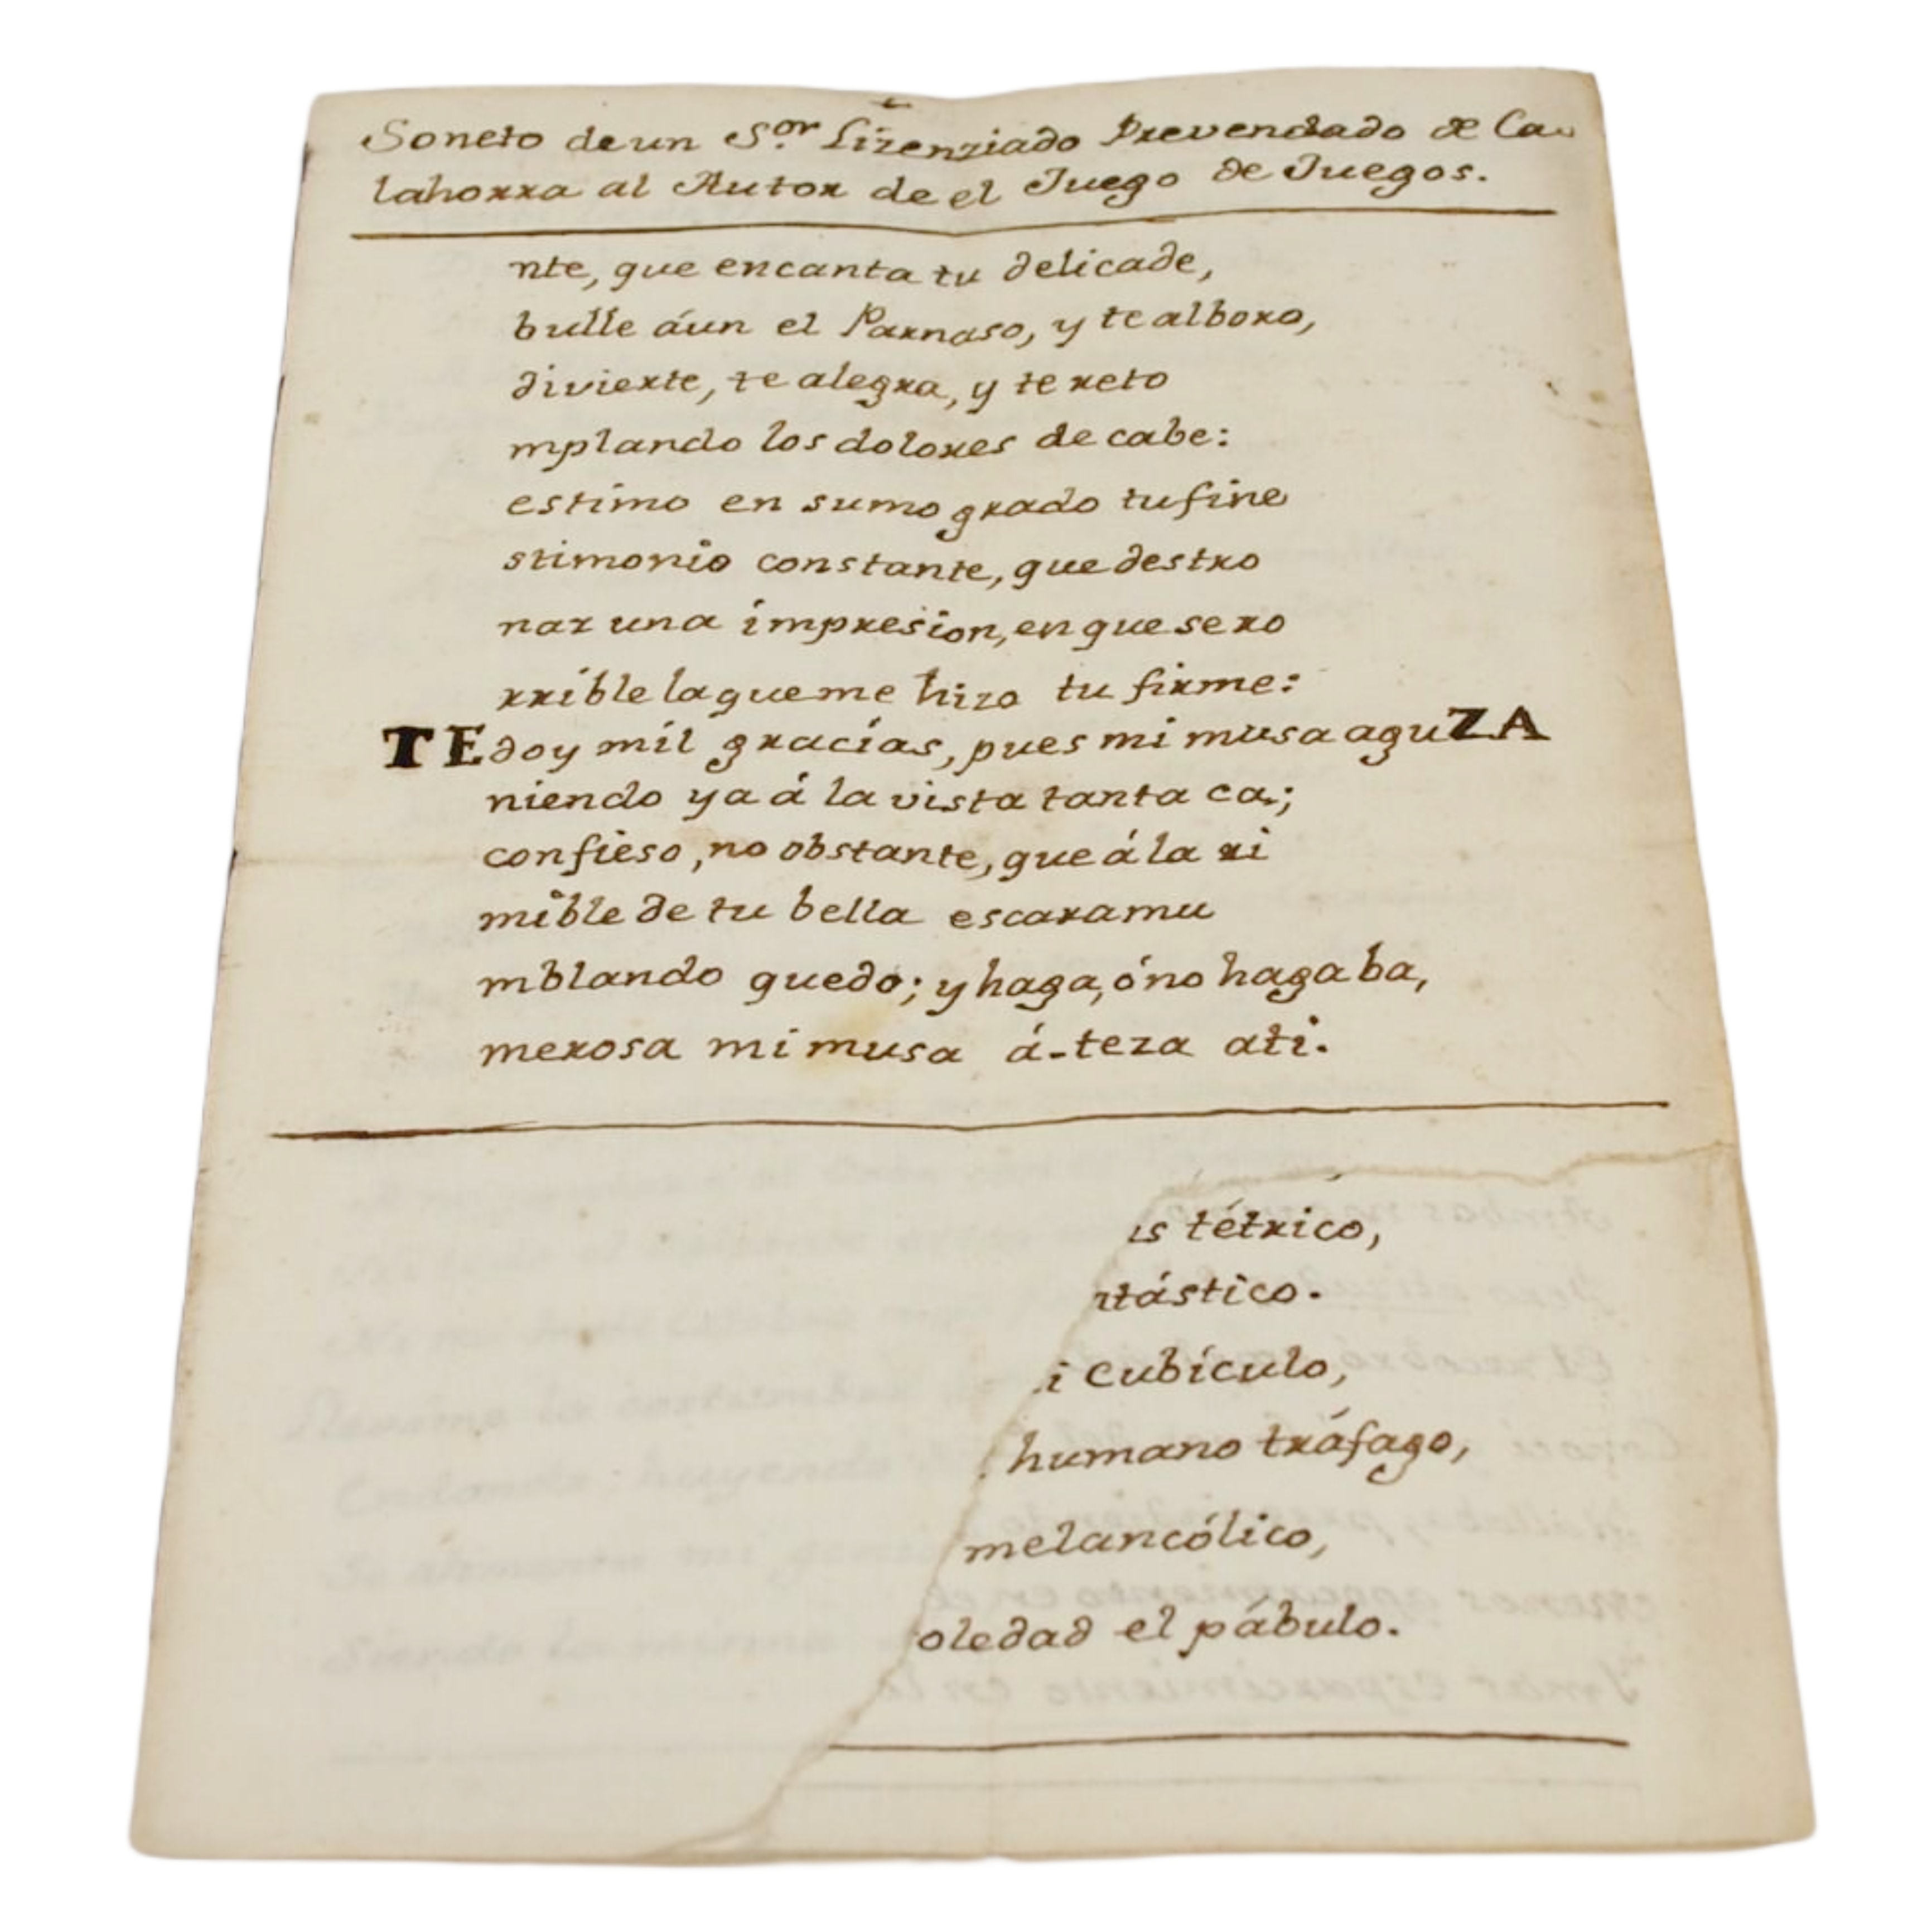 Soneto de un S.or Lizenziado Prevendado de Ca-
lahorra al Autor de el Juego de Juegos.
nte, que encanta tu delicade,
bulle áun el Parnaso, y te alboro,
divierte, te alegra, y te reto
mplando los dolores de cabe:
estimo en sumo grado tu fine
stimonio constante, que destro
nar una impresion, en que se ro
rrible la que me hizo tu firme:
TE doy mil gracias, pues mi musa aguZA
niendo ya á la vista tanta ca.;
confieso, no obstante, que á la ri
mible de tu bella escaramu
mblando quedo; y haga, ó no haga ba,
merosa mi musa á-teza ati.
is tétrico,
ntástico.
i cubículo,
humano tráfago,
melancólico,
oledad el pábulo.